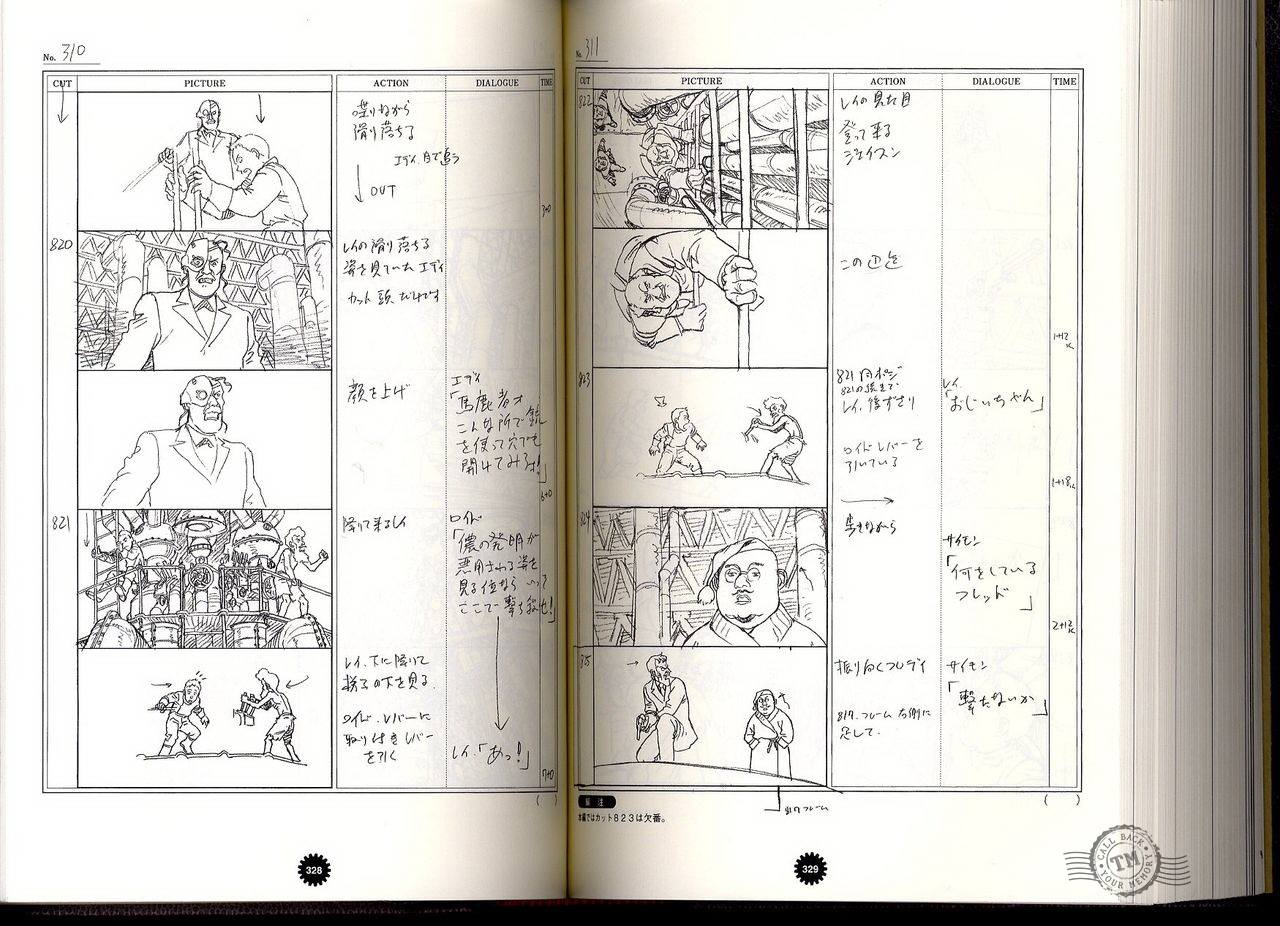 No. 310
CUT
PICTURE
ACTION
DIALOGUE
TIME
喋りながら
滑り落ちる
エディ、目で追う
OUT
3+0
820
レイの滑り落ちる
姿を見ていたエディ
カット頭だけです
顔を上げ
エディ
「馬鹿者才
こんな所で銃
を使って穴でも
開けてみろォ!」
6+0
821
降りて来るレイ
ロイド
「儂の発明が
悪用される姿を
見る位なら いって
ここで撃ち殺せ!」
レイ、下に降りて
梯子の下を見る。
ロイド、レバーに
取り付きレバー
を引く
レイ、「あっ!」
7+0
( )
328
No. 311
CUT
PICTURE
ACTION
DIALOGUE
TIME
822
レイの見た目
登って来る
ジェイスン
この辺迄
1+12
823
821 同ポジ
レイ、後ずさり
レイ、
「おじいちゃん」
ロイド レバーを
引いている
1+18
824
歩きながら
サイモン
「何をしている
フレッド」
2+12
825
振り向くフレディ
サイモン
「撃たないか」
817. フレーム 右側に
応して.
817 フレーム
( )
解注
本編ではカット823は欠番。
329
CALL BACK
TM
YOUR MEMORY